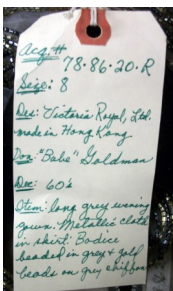 Acq #
78.86.20.R
Size: 8
Des: Victoria Royal, Ltd.
made in Hong Kong
Don: "Babe" Goldman
Dec: 60's
Item: long grey evening
gown. Metallic cloth
in skirt. Bodice
beaded in grey & gold
beads on grey chiffon